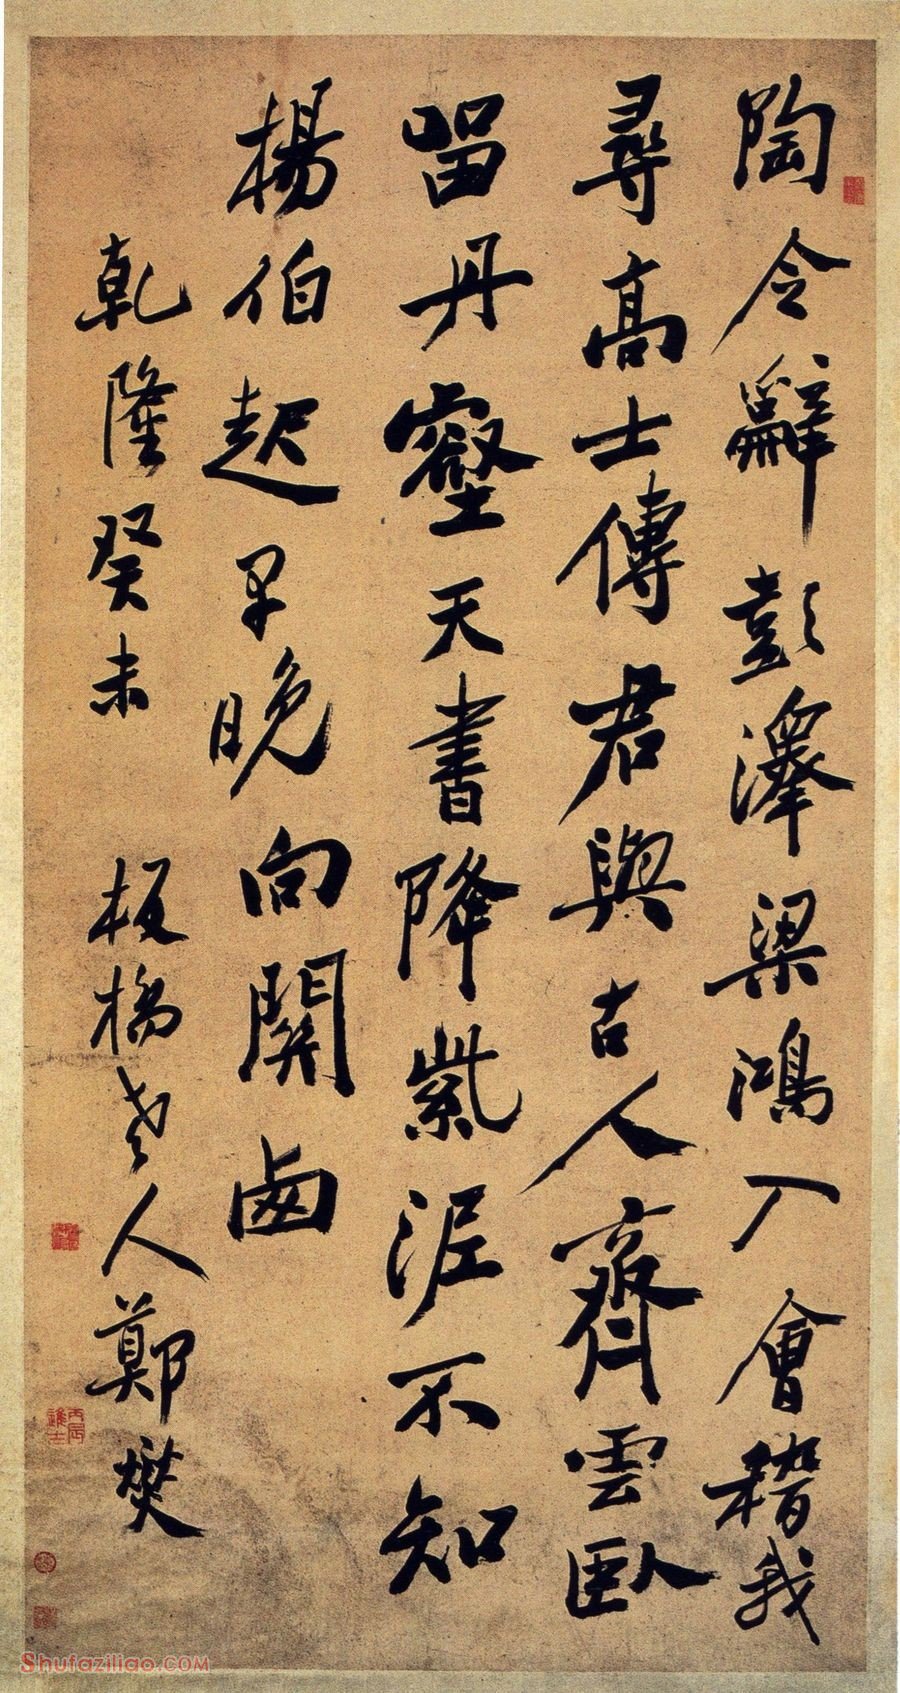 陶令辭彭澤梁鴻入會稽我
尋高士傳君與古人齊雲臥
留丹壑天書降紫泥不知
楊伯起早晚向關西
乾隆癸未 板橋老人鄭燮
丙辰進士
Shufaziliao.COM